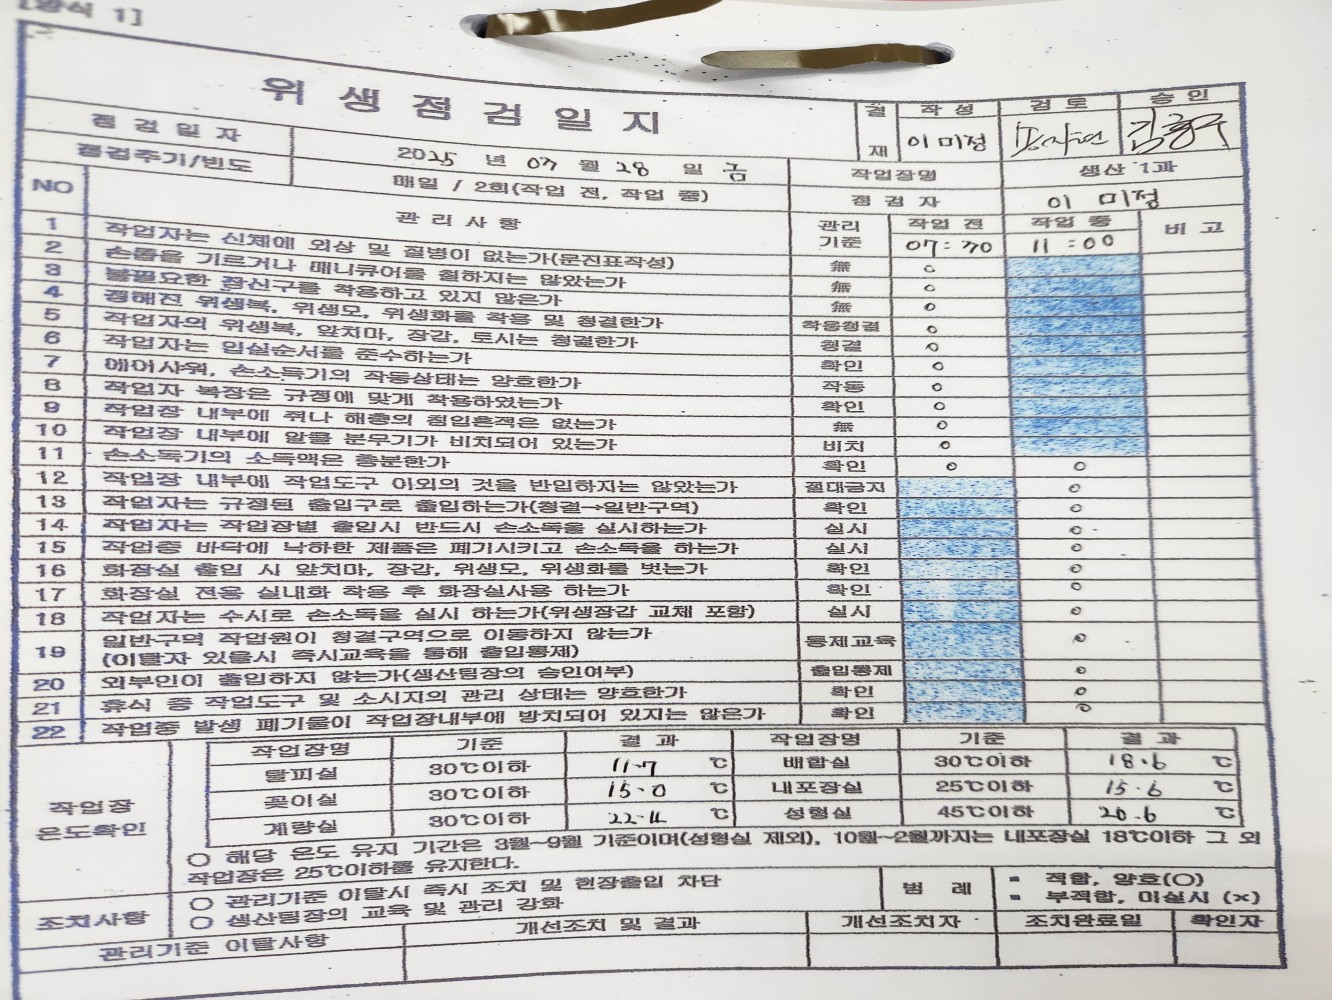 [양식 1]
위생점검일지
결재 작성 검토 승인
이미정
점검일자 2025 년 07 월 28 일 금 작업장명 생산 1과
점검주기/빈도 매일 / 2회(작업 전, 작업 중) 점검자 이미정
NO 관리사항 관리기준 작업 전 작업 중 비고
07:30 11:00
1 작업자는 신체에 외상 및 질병이 없는가(문진표작성) 無 ○
2 손톱을 기르거나 매니큐어를 칠하지는 않았는가 無 ○
3 불필요한 장신구를 착용하고 있지 않은가 無 ○
4 정해진 위생복, 위생모, 위생화를 착용 및 청결한가 착용청결 ○
5 작업자의 위생복, 앞치마, 장갑, 토시는 청결한가 청결 ○
6 작업자는 입실순서를 준수하는가 확인 ○
7 에어샤워, 손소독기의 작동상태는 양호한가 작동 ○
8 작업자 복장은 규정에 맞게 착용하였는가 확인 ○
9 작업장 내부에 쥐나 해충의 침입흔적은 없는가 無 ○
10 작업장 내부에 알콜 분무기가 비치되어 있는가 비치 ○
11 손소독기의 소독액은 충분한가 확인 ○ ○
12 작업장 내부에 작업도구 이외의 것을 반입하지는 않았는가 절대금지 ○
13 작업자는 규정된 출입구로 출입하는가(청결→일반구역) 확인 ○
14 작업자는 작업장별 출입시 반드시 손소독을 실시하는가 실시 ○
15 작업중 바닥에 낙하한 제품은 폐기시키고 손소독을 하는가 실시 ○
16 화장실 출입 시 앞치마, 장갑, 위생모, 위생화를 벗는가 확인 ○
17 화장실 전용 실내화 착용 후 화장실사용 하는가 확인 ○
18 작업자는 수시로 손소독을 실시 하는가(위생장갑 교체 포함) 실시 ○
19 일반구역 작업원이 청결구역으로 이동하지 않는가 통제교육 ○
(이탈자 있을시 즉시교육을 통해 출입통제)
20 외부인이 출입하지 않는가(생산팀장의 승인여부) 출입통제 ○
21 휴식 중 작업도구 및 소시지의 관리 상태는 양호한가 확인 ○
22 작업중 발생 폐기물이 작업장내부에 방치되어 있지는 않은가 확인 ○
작업장 온도확인
작업장명 기준 결과 작업장명 기준 결과
탈피실 30℃이하 11.7 ℃ 배합실 30℃이하 18.6 ℃
꽂이실 30℃이하 15.0 ℃ 내포장실 25℃이하 15.6 ℃
계량실 30℃이하 22.4 ℃ 성형실 45℃이하 20.6 ℃
○ 해당 온도 유지 기간은 3월~9월 기준이며(성형실 제외), 10월~2월까지는 내포장실 18℃이하 그 외
작업장은 25℃이하를 유지한다.
조치사항
○ 관리기준 이탈시 즉시 조치 및 현장출입 차단
○ 생산팀장의 교육 및 관리 강화
범 례
▪ 적합, 양호(○)
▪ 부적합, 미실시 (×)
관리기준 이탈사항 개선조치 및 결과 개선조치자 조치완료일 확인자